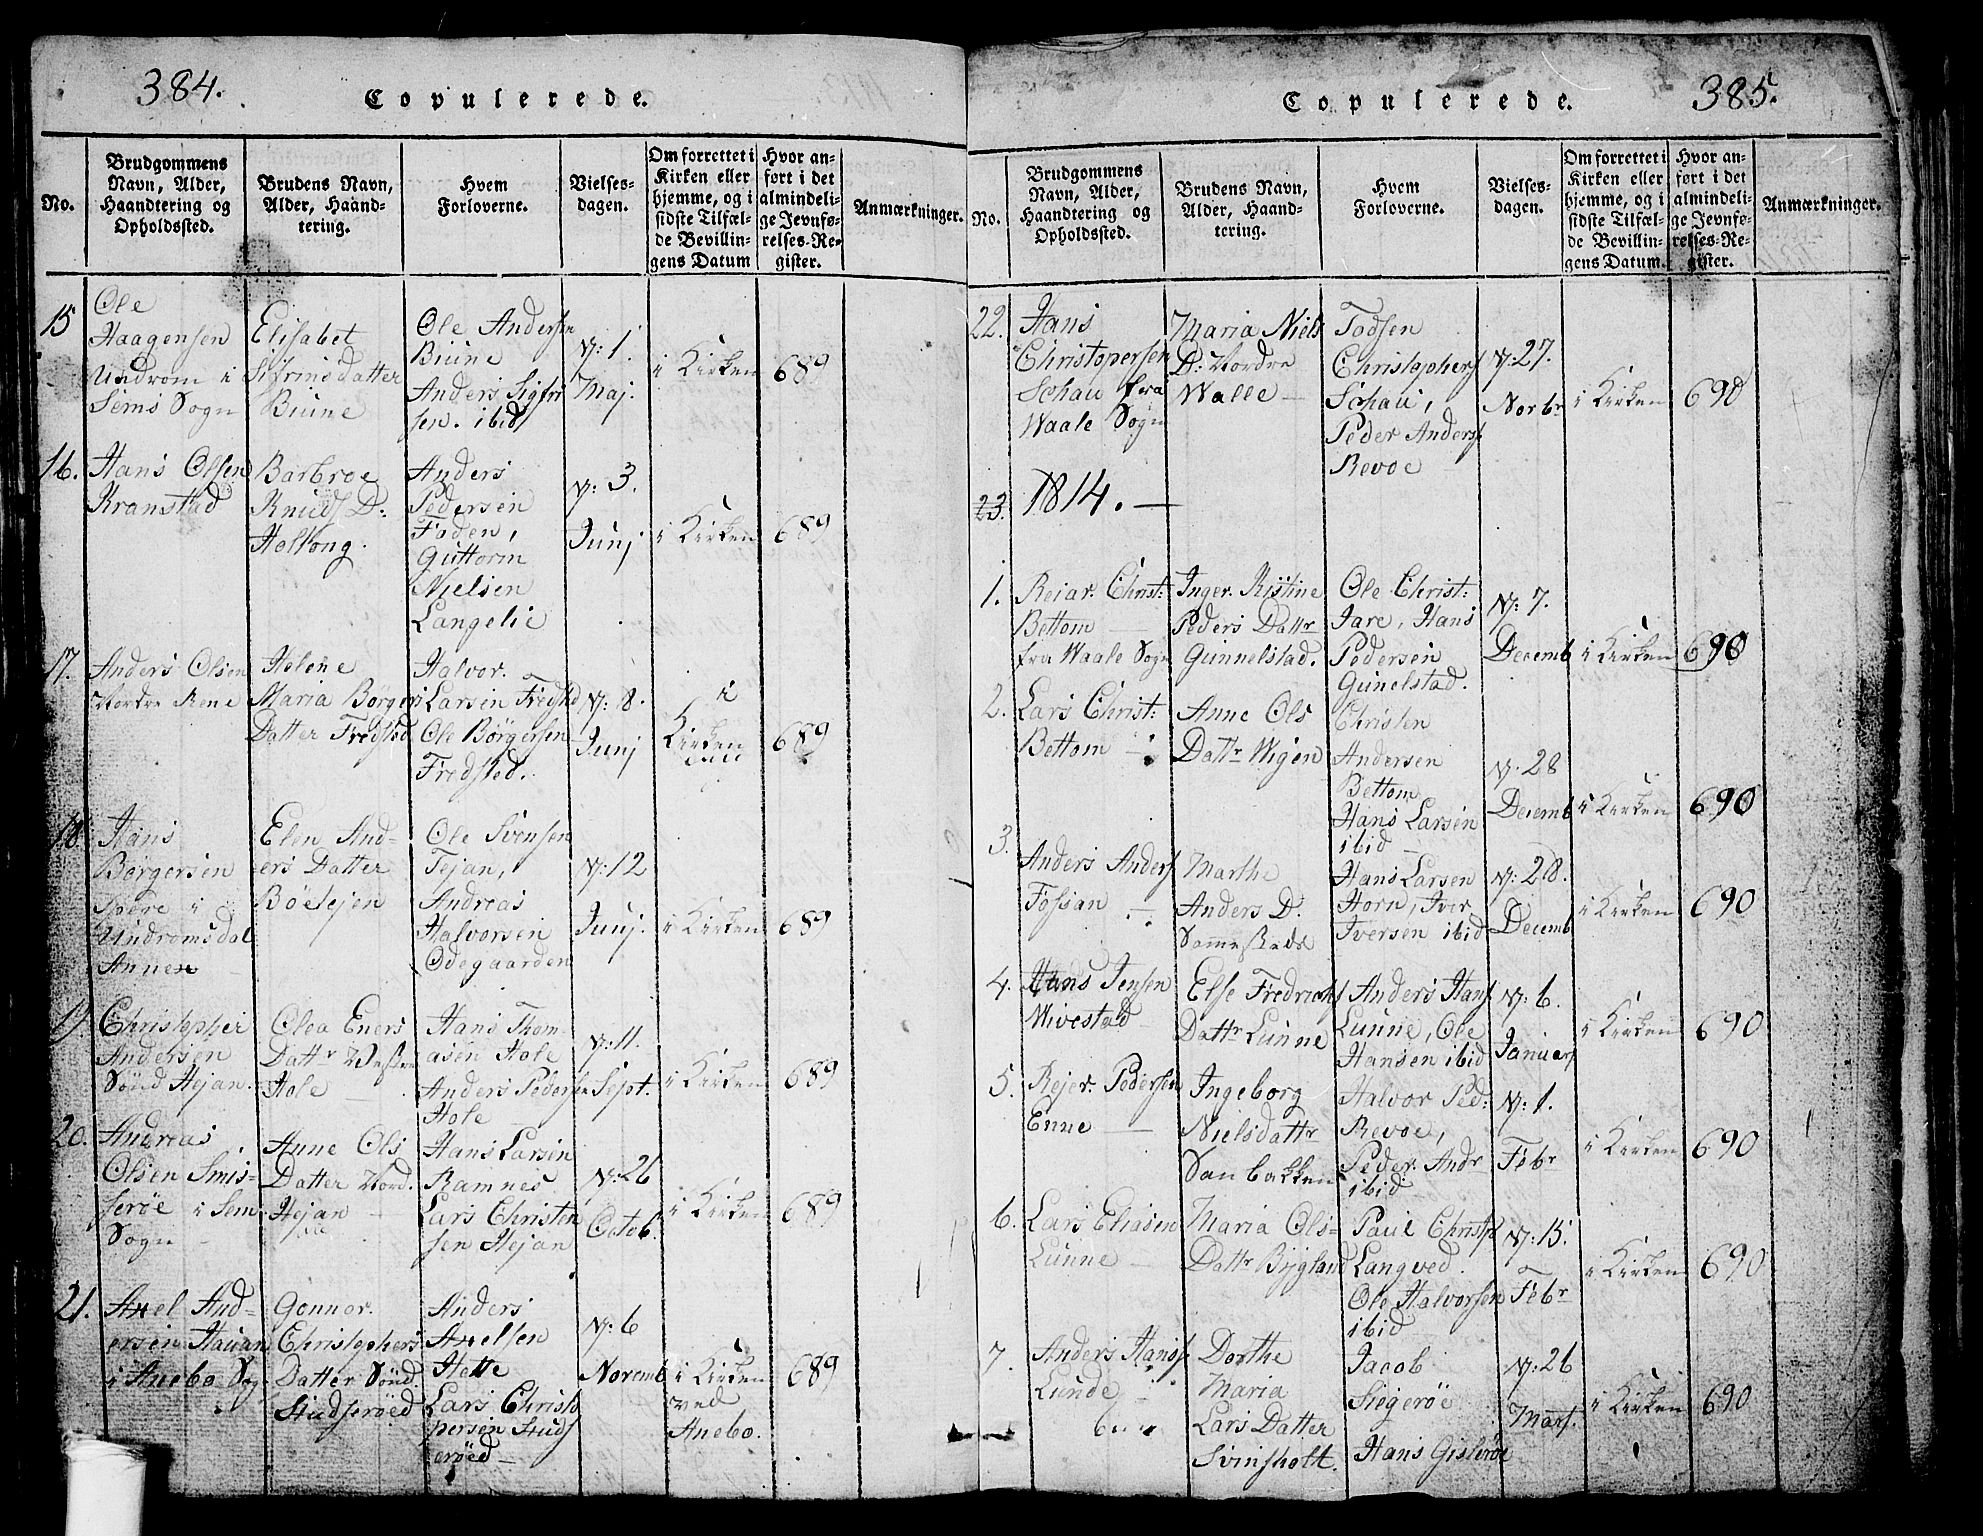 384.
Copulerede.
No.
Brudgommens
Navn, Alder,
Haandtering og
Opholdssted.
Brudens Navn,
Alder, Haand-
tering.
Hvem
Forloverne.
Vielses-
dagen.
Om forrettet i
Kirken eller
hjemme, og i
sidste Tilfæl-
de Bevillin-
gens Datum
Hvor an-
ført i det
almindeli-
ge Jevnfø-
relses-Re-
gister.
Anmærkninger.
15
Ole
Haagensen
Undrom i
Sems Sogn
Elisabet
Sifrinsdatter
Biune
Ole Andersen
Biune
Anders Sigfri
sen. ibid
V: 1.
Maj.
i Kirken
689
16.
Hans Olsen
Kranstad
Barbroe
Knuds D:
Holtong.
Anders
Pedersen
Foden,
Guttorm
Nielsen
Langelie
V: 3.
Junj
i Kirken
689
17.
Anders Olsen
Nordre Rene
Helene
Maria Børgers
Datter Fredsted
Halvor.
Larsen Fredsted
Ole Børgersen
Fredsted.
V: 8.
Junj
i
Kirken
689
18.
Hans
Børgersen
Spere i
Undromsdal
Annex
Elen And-
ers Datter
Bøelejen
Ole Svensen
Tejan,
Andreas
Halvorsen
Ødegaarden
V: 12
Junj.
i Kirken
689
19.
Christopher
Andersen
Sønd Hejan.
Olea Eners
Dattr Vestre
Hole
Hans Thom-
asen Hole
Anders Pedersen
Hole
V: 11.
Sept.
i Kirken
689
20.
Andreas
Olsen Smis-
serøe i Sem
Sogn
Anne Ols
Datter Nord.
Hejan
Hans Larsen
Ramnes
Lars Christen
sen Hejan
V: 26
Octob.
i Kirken
689
21.
Axel And-
ersen Hauan
i Anebo Sog
Gonnor.
Christophers
Datter Sønd
Studserøed
Anders
Axelsen
Hotte
Lars Christo
phersen Studs
erøed
V: 6
Novemb
i Kirken
ved
Anebo.
689
385.
Copulerede.
No.
Brudgommens
Navn, Alder,
Haandtering og
Opholdssted.
Brudens Navn,
Alder, Haand-
tering.
Hvem
Forloverne.
Vielses-
dagen.
Om forrettet i
Kirken eller
hjemme, og i
sidste Tilfæl-
de Bevillin-
gens Datum.
Hvor an-
ført i det
almindeli-
ge Jevnfø-
relses-Re-
gister.
Anmærkninger.
22.
Hans
Christopersen
Schau fra
Waale Sogn
Maria Niels
D: Nordre
Walle
Todsen
Christophers
Schau,
Peder Anders
Revoe
V: 27.
Novbr
i Kirken
690
23.
1814.
1.
Reiar. Christ:
Bettom
fra Waale Sogn
Inger. Kistine
Peders Dattr
Gunnelstad.
Ole Christ:
Jare, Hans
Pedersen
Gunelstad.
V: 7.
Decemb
i Kirken
690
2.
Lars Christ:
Bettom
Anne Ols
Dattr Wigen
Christen
Andersen
Bettom
Hans Larsen
ibid
V. 28
Decemb
i Kirken
690
3.
Anders Anders
Fossan
Marthe
Anders D.
Hans Larsen
Horn, Iver
Iversen ibid
V: 28.
Decemb
i Kirken
690
4.
Hans Jensen
Wivestad
Else Fredrichs
Dattr Lunne
Anders Hans
Lunne, Ole
Hansen ibid
V: 6.
Januar
i Kirken
690
5.
Rejer. Pedersen
Enne
Ingeborg
Nielsdattr
Sanbakken
Halvor Ped:
Revoe,
Peder. Andr
ibid
V: 1.
Febr
i Kirken
690
6.
Lars Eliasen
Lunne
Maria Ols-
Dattr Bygland
Paul Christ
Langved.
Ole Halvorsen
ibid
V: 15.
Febr
i Kirken
690
7.
Anders Hans
Lunde
Dorthe
Maria
Lars Datter
Svinsholt.
Jacob
Siegerøe
Hans Gislerøe
V: 26
Mars.
i Kirken
690